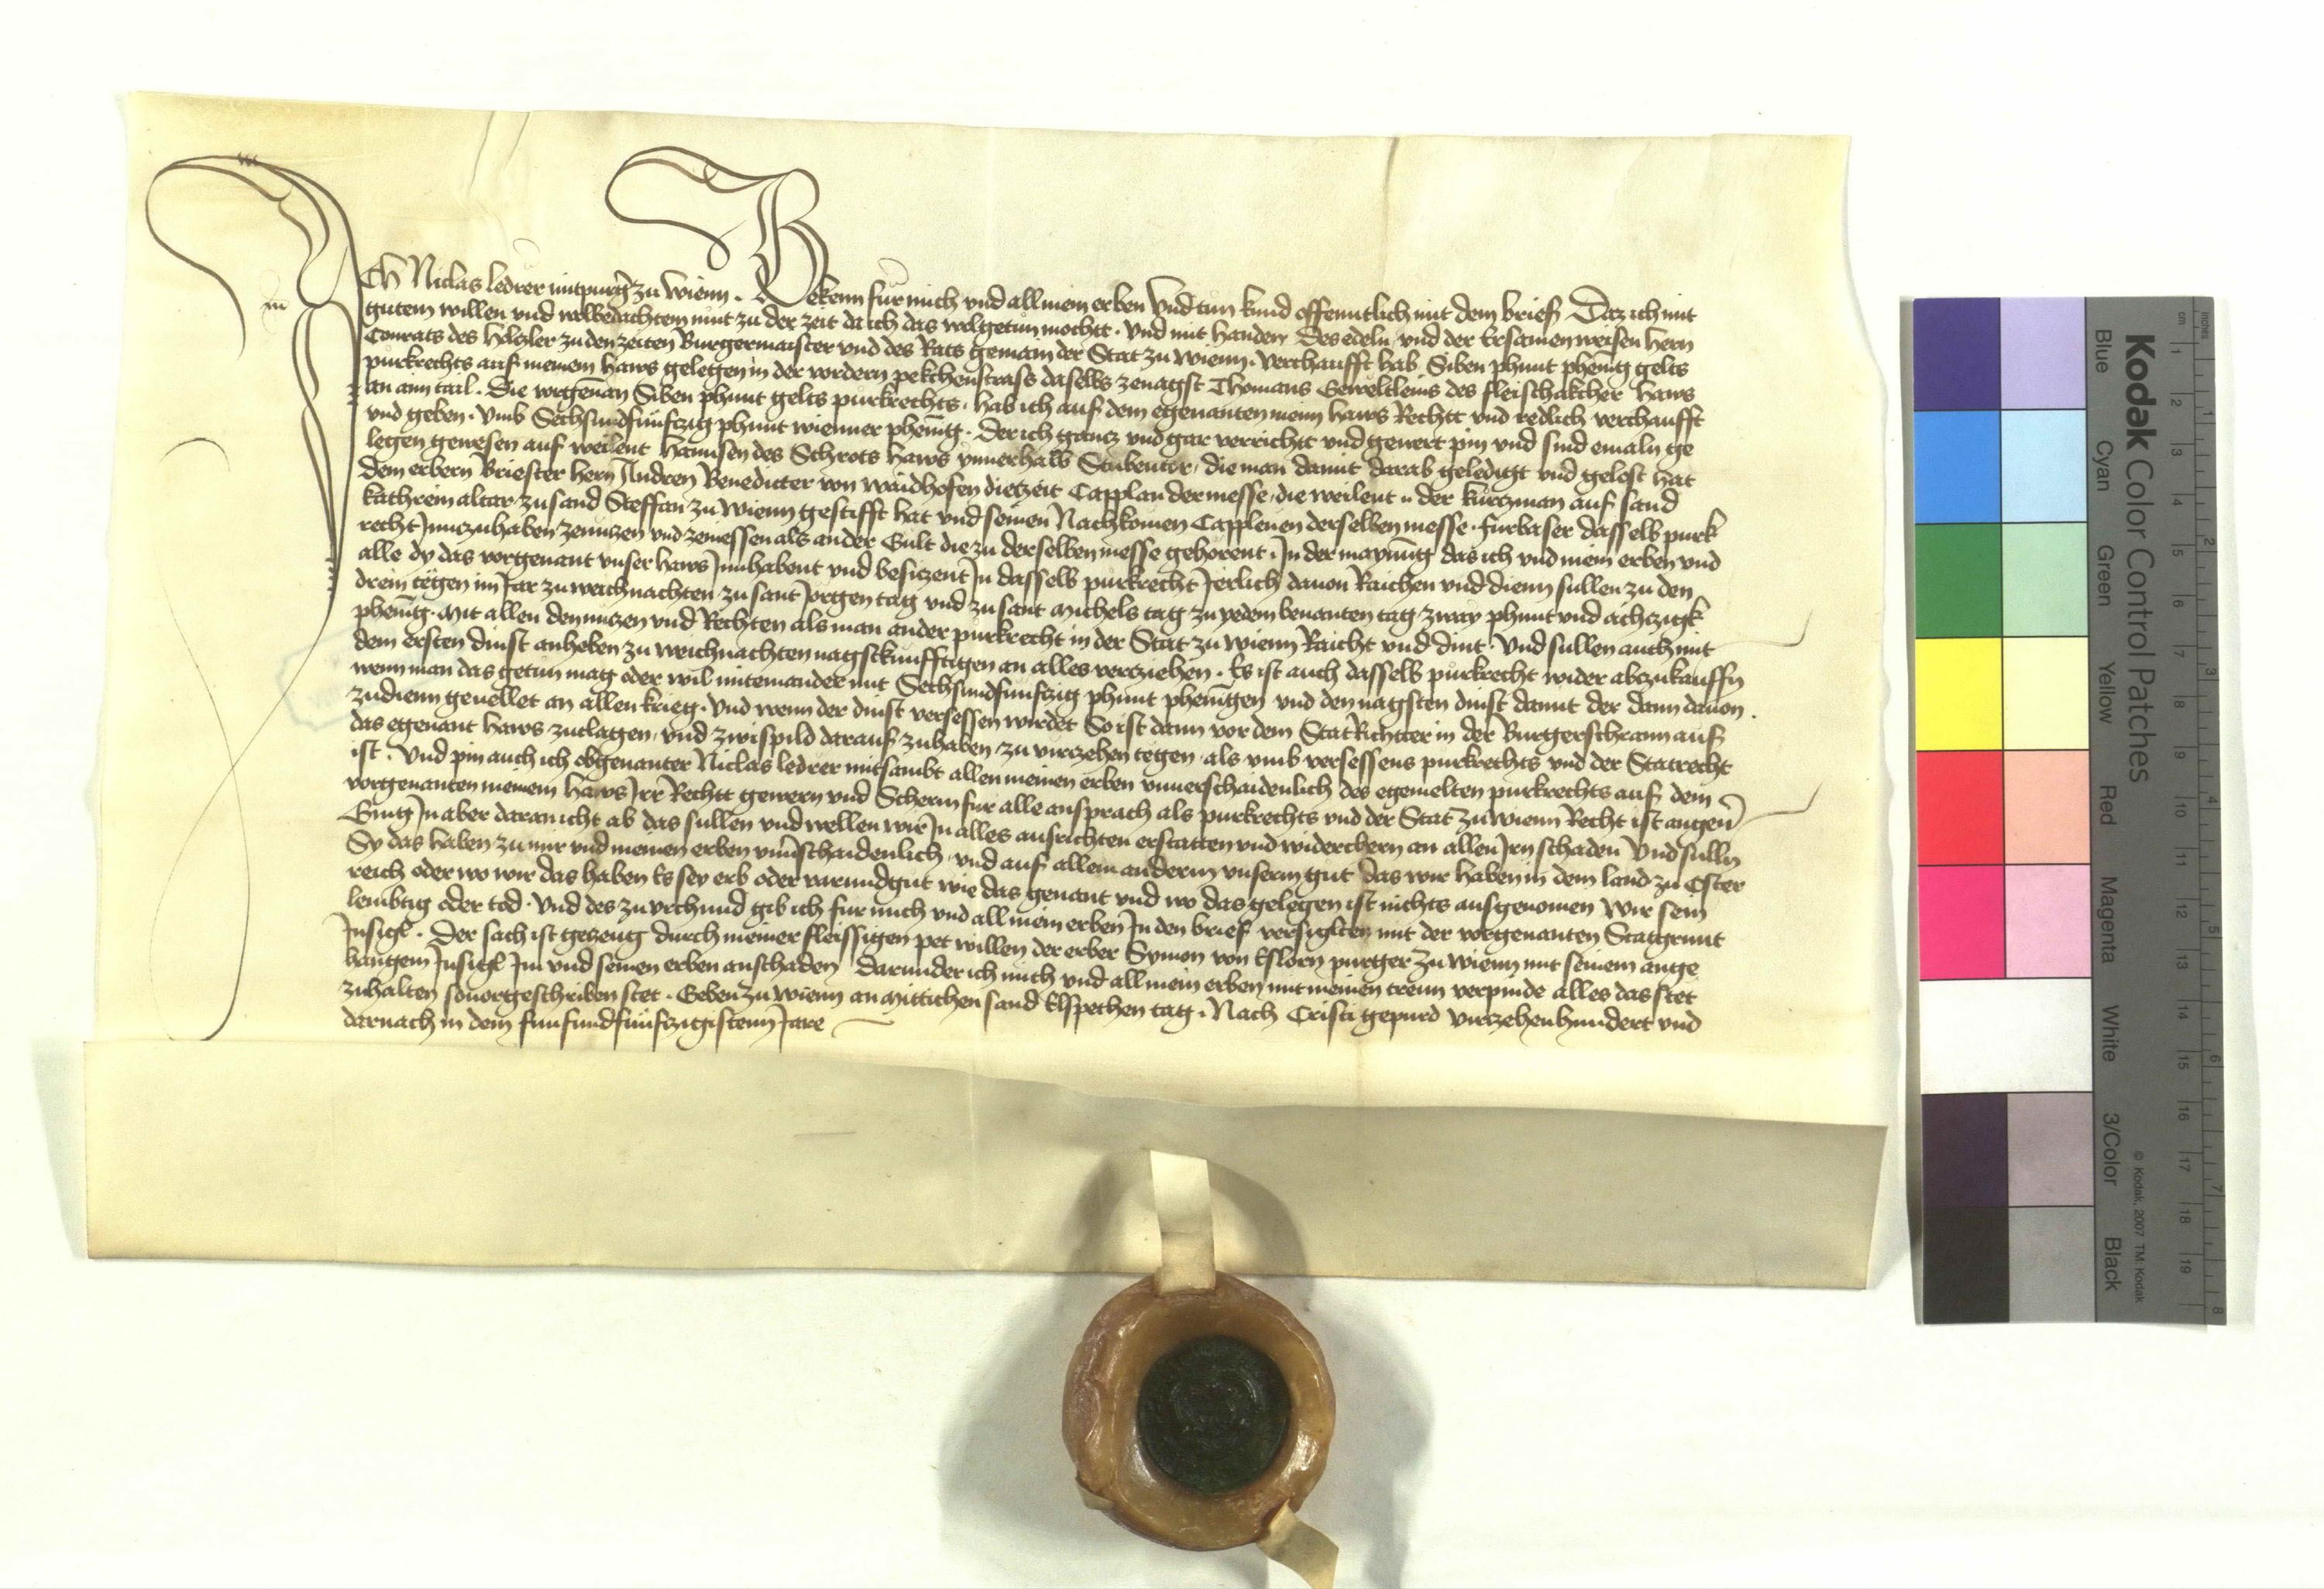 Ich Niclas ledrer mitpurg̃ zu wienn · Bekenn fur mich vnd all mein erben Vnd tun kund offenntlich mit dem brief Daz ich mit
gutem willen vnd wolbedachtem mut zu der zeit da ich das wolgetun mocht · Vnd mit handen Des edeln vnd der Ersamen weisen hern
Conrats des Hölzler zu den zeiten Burgermaister vnd des Rats gemain der Stat zu wienn · verchaufft hab Siben phunt phenig gelts
purkrechts auf meinem Haws gelegen in der vordern pekchenstrass daselbs zenagst Thomans des fleischakcher Haws
an ainem tail · Die vorgenan Siben phunt gelts purkrechts · hab ich auf dem egenanten meim haws Recht vnd redlich verchaufft
vnd geben · Vmb Sechsundfünfczig phunt wienner phenig · Der ich gancz vnd gar verricht vnd gewert pin vnd sind emaln ge
legen gewesen auf weilent Hannsen des Schrots Haws ynnerhalb Stubentor / die man damit darab geledigt vnd gelost hat
dem erbern Briester hern Andren Benedicter von waidhofen dietzeit Capplan der messe / die weilent .. der kürczman auf sand
kathrein altar zu sand Steffan zu wienn gestifft hat vnd seinen Nachkomen Capplenen derselben messe · furbaser dasselb purk
recht Innzuhaben zenuczen vnd zeniessen als ander Gult die zu derselben messe gehorent · In der maynung das ich vnd mein erben vnd
alle dy das vorgenant vnser haws Innhabent vnd besiczent In dasselb purkrecht Jerlich dauon Raichen vnd dienn sullen zu den
drein tegen im Jar zu weichnachten zu sant Jorgen tag vnd zu sant Michels tag zu yedem benanten tag zway phunt vnd achczigk
phenig · Mit allen den nuczen vnd Rechten als man ander purkrecht in der Stat zu wienn Raicht vnd dint · Vnd sullen auch mit
dem ersten dinst anheben zu weichnachten nagstkunfftigen an alles verziehen · Es ist auch dasselb purkrecht wider abczukauffn
wenn man das getun mag oder wil miteinander mit Sechsundfunfczig phunt phenigen vnd den nagsten dinst damit der dann dauon
zudienn geuellet an allen krieg · Vnd wenn der dinst versessen wirdet So ist dann vor dem StatRichter in der Burgerschrann auf
das egenant haws zuclagen / vnd zwispild darauf zuhaben / zu virczehen tegen als vmb versessens purkrechts vnd der Statrecht
ist · Vnd pin auch ich obgenanter Niclas ledrer mitsambt allen meinen erben vnuerschaidenlich des egemelten purkrechts auf dem
vorgenanten meinem haws Irr Recht gewern vnd Scherm fur alle ansprach als purkrechts vnd der Stat zu wienn Recht ist angeu̅
Ging In aber daran icht ab das sullen vnd wellen wir In alles ausrichten erstatten vnd widerchern an allen Irn schaden Vnd sulln
Sy das haben zu mir vnd meinen erben vnu̅schaidenlich / vnd auf allem anderm vnserm gut Das wir haben in dem land zu Oster
reich oder wo wir das haben Es sey erb oder varundgut wie das genant vnd wo das gelegen ist nichts ausgenomen Wir sein
lembtig oder tod · Vnd des zu vrchund gib ich fur mich vnd all mein erben In den brief versiglten mit der vorgenanten Statgrunt
Insigl · Der sach ist gezeug durch meiner fleissigen pet willen der erber Symon von purger zu wienn mit seinem ange
hangem Insigl Im vnd seinen erben anschaden Darunder ich mich vnd all mein erben mit meinen trewn verpinde alles das stet
zuhalten so uorgeschriben stet · Geben zu wienn an Mittichen sand Elspethen tag · Nach Cristi gepurd virczehenhundert vnd
darnach in dem funfundfunfzigistem Jare
Kodak Color Control Patches
Blue Cyan Green Yellow Red Magenta White 3/Color Black
© Kodak, 2007 TM: Kodak
inches 1 2 3 4 5 6 7 8
cm 1 2 3 4 5 6 7 8 9 10 11 12 13 14 15 16 17 18 19